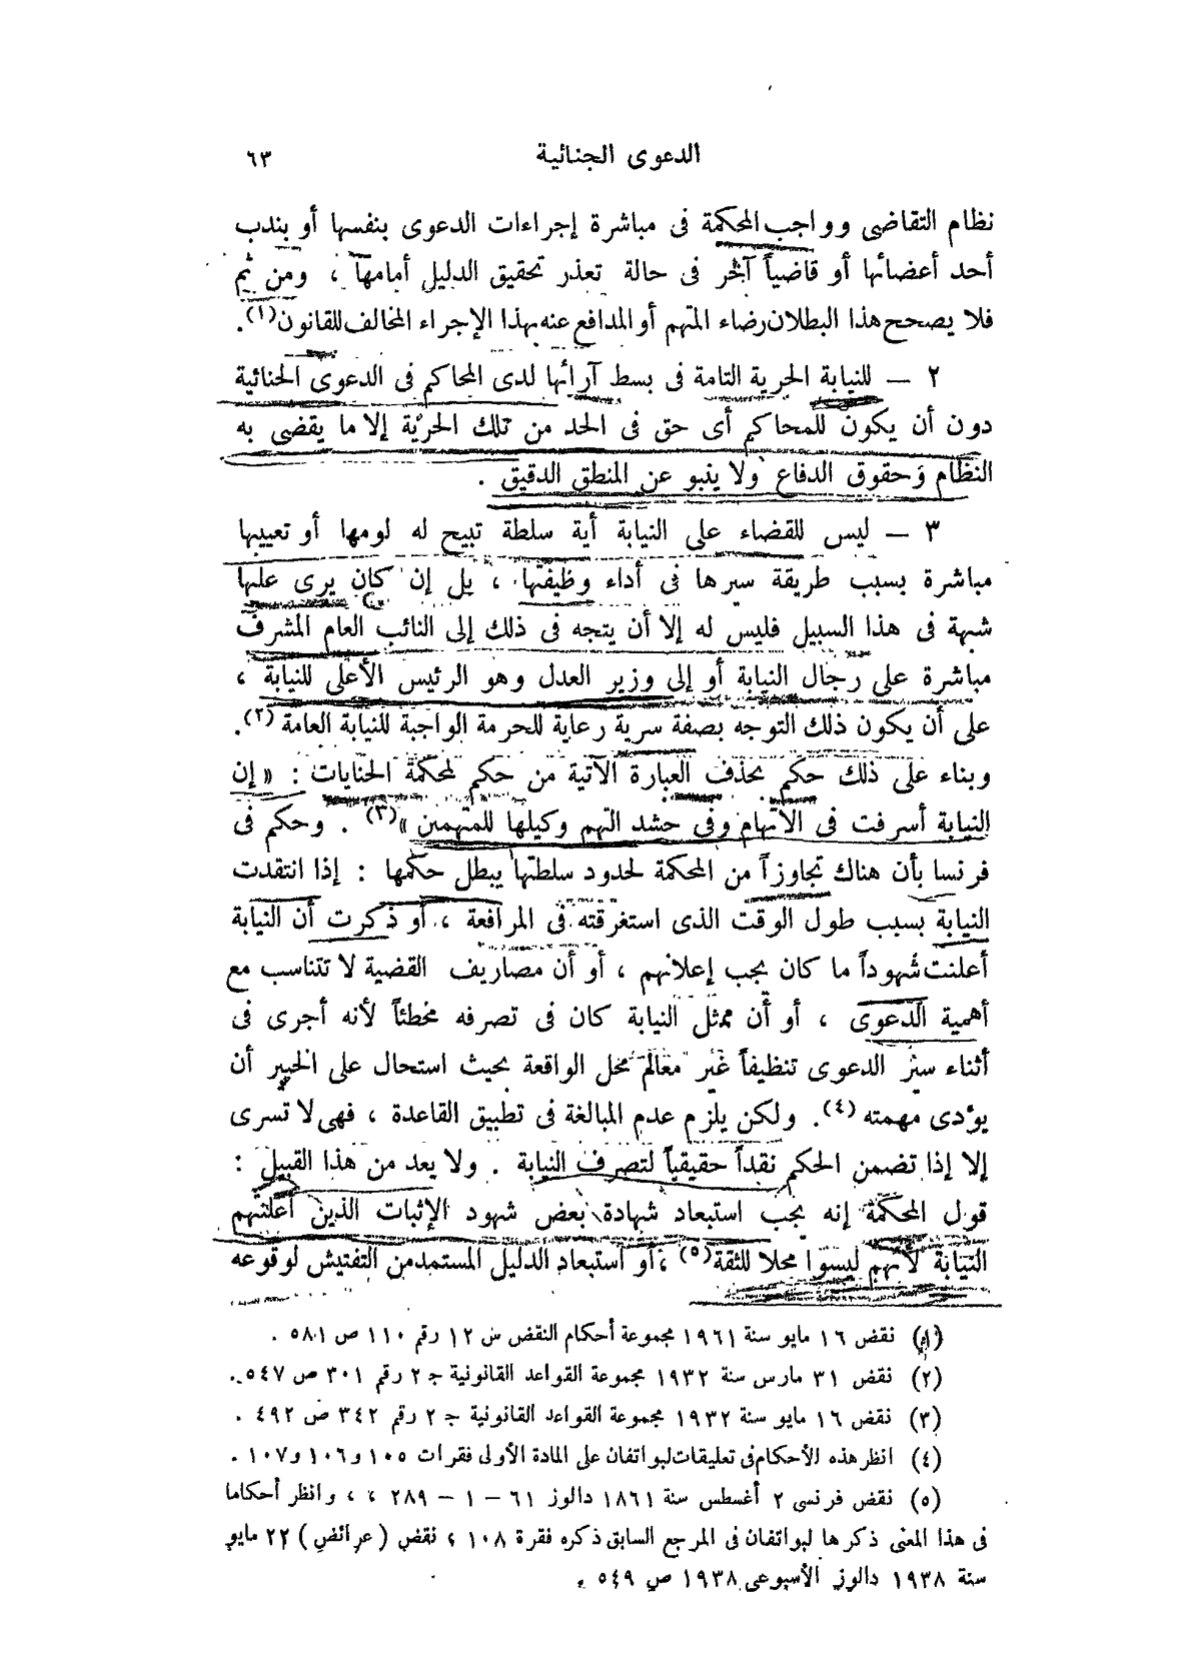 الدعوى الجنائية ٦٣
نظام التقاضى وواجب المحكمة فى مباشرة إجراءات الدعوى بنفسها أو بندب
أحد أعضائها أو قاضياً آخر فى حالة تعذر تحقيق الدليل أمامها ، ومن ثم
فلا يصحح هذا البطلان رضاء المتهم أو المدافع عنه بهذا الإجراء المخالف للقانون (١).
٢ — للنيابة الحرية التامة فى بسط آرائها لدى المحاكم فى الدعوى الجنائية
دون أن يكون للمحاكم أى حق فى الحد من تلك الحرية إلا ما يقضى به
النظام وحقوق الدفاع ولا ينبو عن المنطق الدقيق .
٣ — ليس للقضاء على النيابة أية سلطة تبيح له لومها أو تعييبها
مباشرة بسبب طريقة سيرها فى أداء وظيفتها ، بل إن كان يرى عليها
شبهة فى هذا السبيل فليس له إلا أن يتجه فى ذلك إلى النائب العام المشرف
مباشرة على رجال النيابة أو إلى وزير العدل وهو الرئيس الأعلى للنيابة ،
على أن يكون ذلك التوجه بصفة سرية رعاية للحرمة الواجبة للنيابة العامة (٢).
وبناء على ذلك حكم بحذف العبارة الآتية من حكم لمحكمة الجنايات : « إن
النيابة أسرفت فى الاتهام وفى حشد التهم وكيلها للمتهمين »(٣) . وحكم فى
فرنسا بأن هناك تجاوزاً من المحكمة لحدود سلطتها يبطل حكمها : إذا انتقدت
النيابة بسبب طول الوقت الذى استغرقته فى المرافعة ، أو ذكرت أن النيابة
أعلنت شهوداً ما كان يجب إعلانهم ، أو أن مصاريف القضية لا تتناسب مع
أهمية الدعوى ، أو أن ممثل النيابة كان فى تصرفه مخطئاً لأنه أجرى فى
أثناء سير الدعوى تنظيفاً غير معالم محل الواقعة بحيث استحال على الخبير أن
يؤدى مهمته (٤). ولكن يلزم عدم المبالغة فى تطبيق القاعدة ، فهى لا تسرى
إلا إذا تضمن الحكم نقداً حقيقياً لتصرف النيابة . ولا يعد من هذا القبيل :
قول المحكمة إنه يجب استبعاد شهادة بعض شهود الإثبات الذين أعلنتهم
النيابة لأنهم ليسوا محلا للثقة (٥) ، أو استبعاد الدليل المستمد من التفتيش لوقوعه
(١) نقض ١٦ مايو سنة ١٩٦١ مجموعة أحكام النقض س ١٢ رقم ١١٠ ص ٥٨١ .
(٢) نقض ٣١ مارس سنة ١٩٣٢ مجموعة القواعد القانونية ج ٢ رقم ٣٠١ ص ٥٤٧ .
(٣) نقض ١٦ مايو سنة ١٩٣٢ مجموعة القواعد القانونية ج ٢ رقم ٣٤٢ ص ٤٩٢ .
(٤) انظر هذه الأحكام فى تعليقات لبواتفان على المادة الأولى فقرات ١٠٥ و ١٠٦ و ١٠٧ .
(٥) نقض فرنسى ٢ أغسطس سنة ١٨٦١ دالوز ٦١ – ١ – ٢٨٩ ، ، وانظر أحكاما
فى هذا المعنى ذكرها لبواتفان فى المرجع السابق ذكره فقرة ١٠٨ ، نقض ( عرائض ) ٢٢ مايو
سنة ١٩٣٨ دالوز الأسبوعى ١٩٣٨ ص ٥٤٩ .